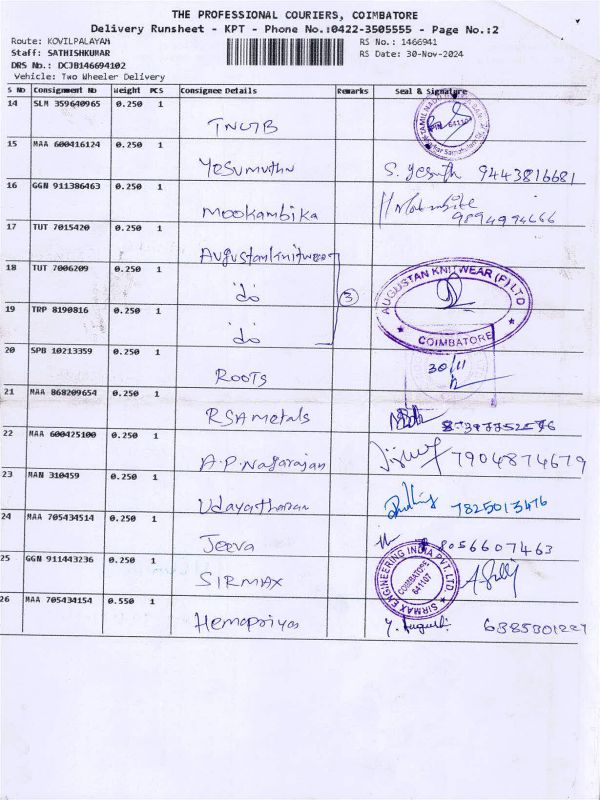 THE PROFESSIONAL COURIERS, COIMBATORE
Delivery Runsheet - KPT - Phone No.:0422-3505555 - Page No.:2
Route: KOVILPALAYAM
RS No.: 1466941
Staff: SATHISHKUMAR
RS Date: 30-Nov-2024
DRS No.: DCJB146694102
Vehicle: Two Wheeler Delivery
S No Consignment No Weight PCS Consignee Details Remarks Seal & Signature
14 SLM 359640965 0.250 1
TNGB
15 MAA 600416124 0.250 1
Yesumuthu S. Yesuth 9443816681
16 GGN 911386463 0.250 1
Mookambika 9894994666
17 TUT 7015420 0.250 1
Augustanknitwear
18 TUT 7006209 0.250 1
do 3
AUGUSTAN KNITWEAR (P) LTD
COIMBATORE
19 TRP 8190816 0.250 1
do
20 SPB 10213359 0.250 1
ROOTS 30/11
21 MAA 868209654 0.250 1
RSA Metals
22 MAA 600425100 0.250 1
A.P. Nagarajan 7904874679
23 MAN 310459 0.250 1
Udayatharan 7825013476
24 MAA 705434514 0.250 1
Jeeva 8056607463
25 GGN 911443236 0.250 1
SIRMAX
SIRMAX ENGINEERING INDIA PVT. LTD
COIMBATORE
641107
26 MAA 705434154 0.550 1
Hemapriya 6385301227